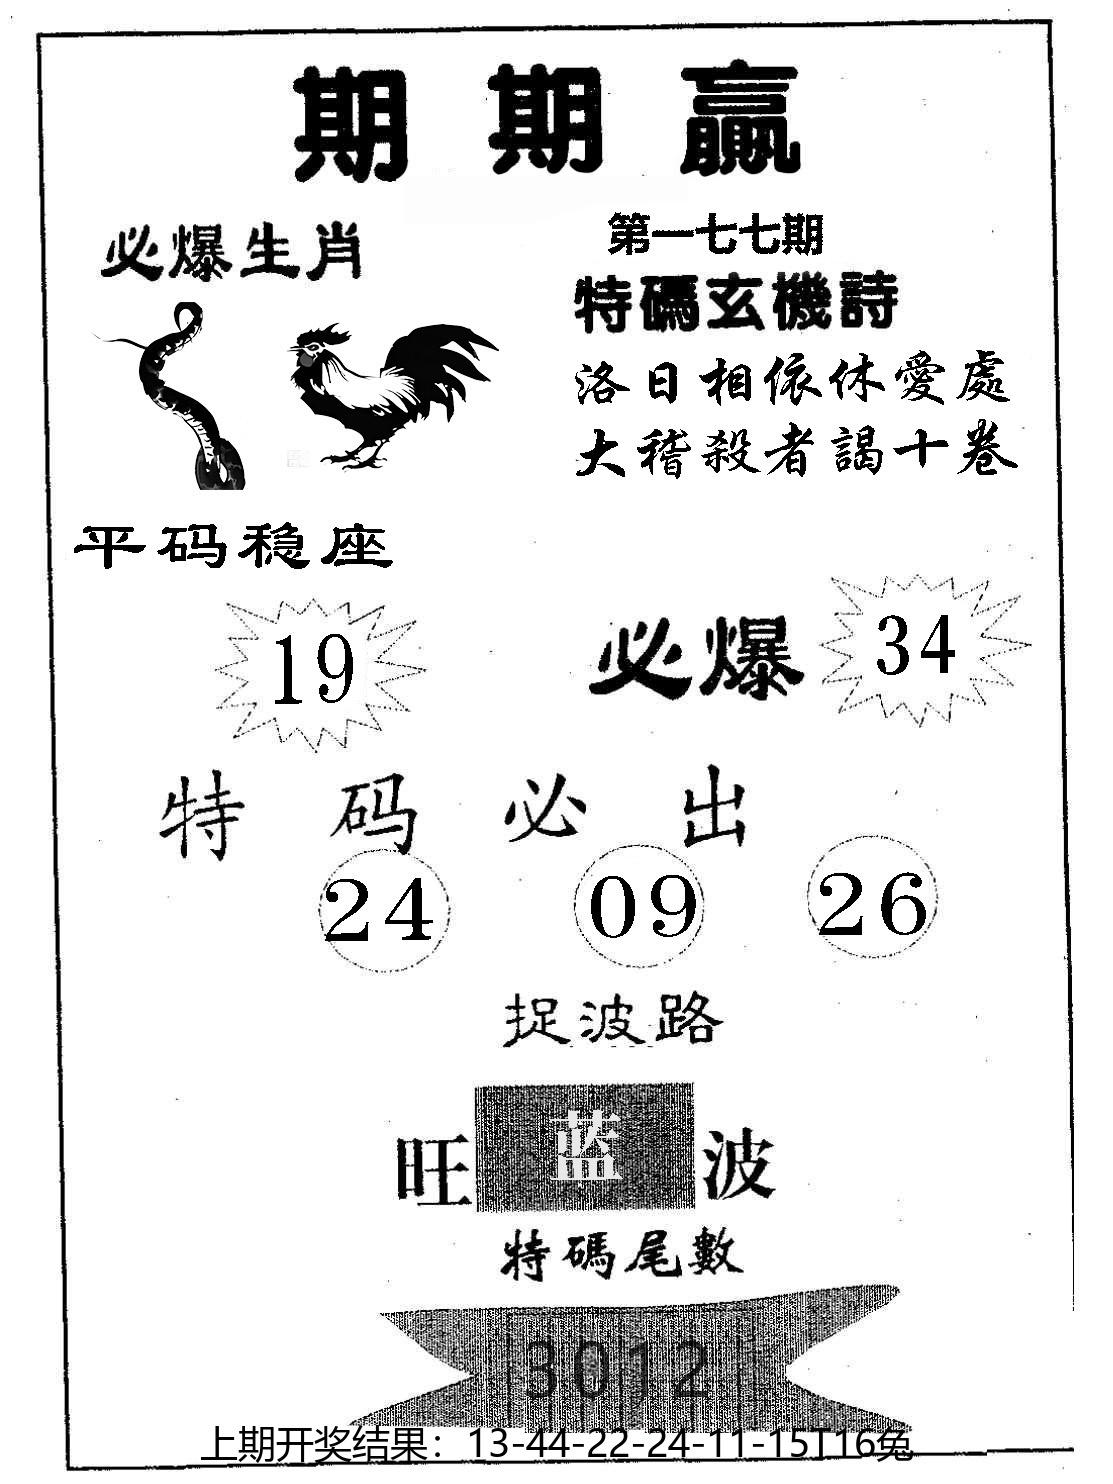 期期贏
必爆生肖
第一七七期
特碼玄機詩
洛日相依休愛處
大稽殺者謁十卷
平码稳座
19
必爆
34
特码必出
24 09 26
捉波路
旺蓝波
特碼尾數
3012
上期开奖结果：13-44-22-24-11-15T16兔